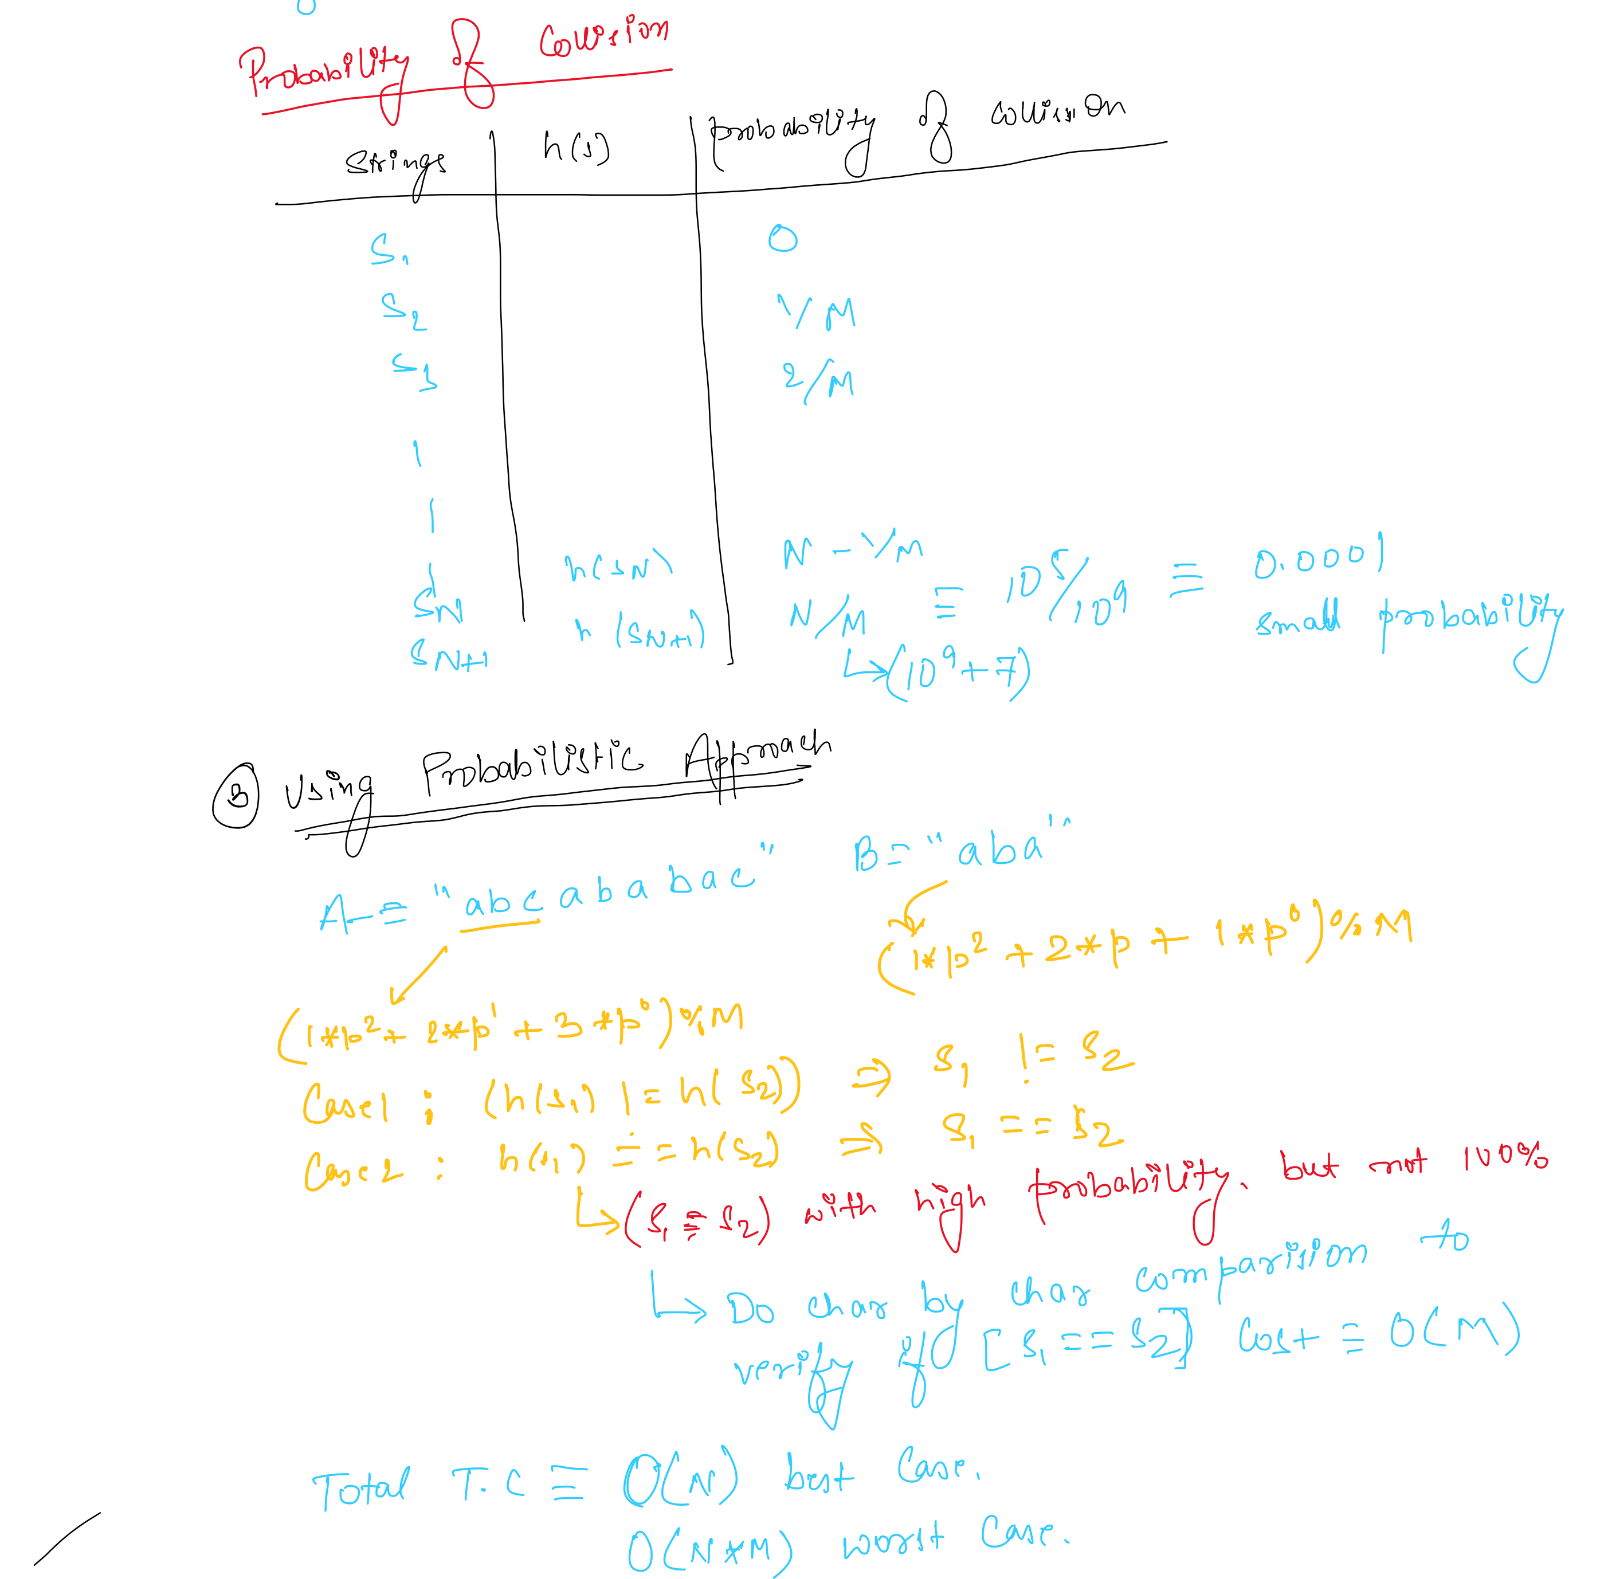 Probability of Collision
Strings h(s) probability of collission
S1 0
S2 1/M
S3 2/M
SN h(SN) N-1/M
SN+1 h(SN+1) N/M ≡ 10^5/10^9 ≡ 0.0001
small probability
↳(10^9+7)
③ Using Probabilistic Approach
A = "abcababac" B = "aba"
(1*p^2 + 2*p + 1*p^0)%M
(1*p^2 + 2*p^1 + 3*p^0)%M
Case1 : (h(s1) != h(s2)) ⇒ S1 != S2
Case2 : h(s1) == h(s2) ⇒ S1 == S2
↳(S1 ≡ S2) with high probability, but not 100%
↳ Do char by char comparision to
verify if [S1 == S2] Cost ≡ O(M)
Total T.C ≡ O(N) best Case.
O(N*M) worst Case.